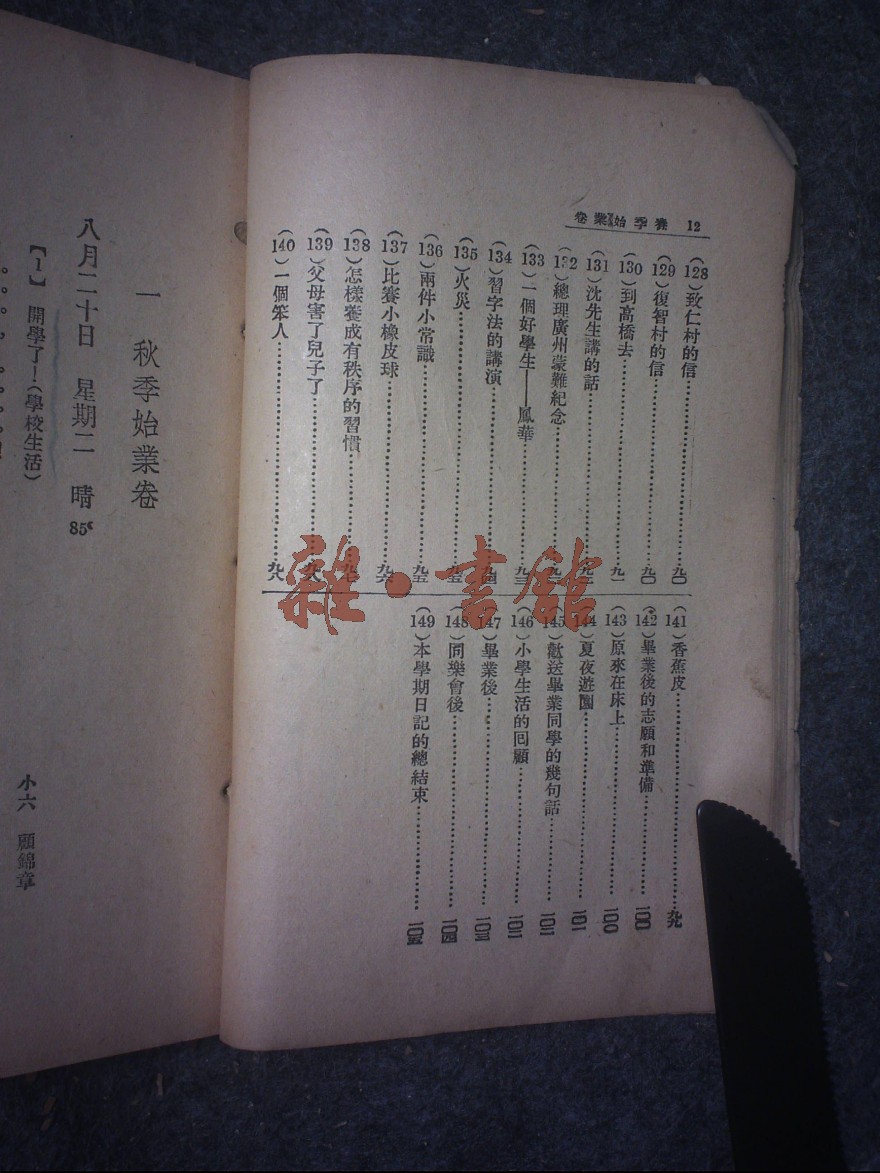 春季始業卷 12
(128)致仁村的信……九〇
(129)復智村的信……九〇
(130)到高橋去……九一
(131)沈先生講的話
(132)總理廣州蒙難紀念
(133)一個好學生——鳳華……九三
(134)習字法的講演……九四
(135)火災……九五
(136)兩件小常識……九五
(137)比賽小橡皮球……九六
(138)怎樣養成有秩序的習慣……九七
(139)父母害了兒子了……九八
(140)一個笨人……九八
(141)香蕉皮……九九
(142)畢業後的志願和準備……一〇〇
(143)原來在床上……一〇〇
(144)夏夜遊園……一〇一
(145)歡送畢業同學的幾句話……一〇二
(146)小學生活的回顧……一〇二
(147)畢業後……一〇三
(148)同樂會後……一〇四
(149)本學期日記的總結束……一〇五
一 秋季始業卷
八月二十日 星期二 晴 85°
【1】開學了!(學校生活)
小六 顧錦章
雜·書館